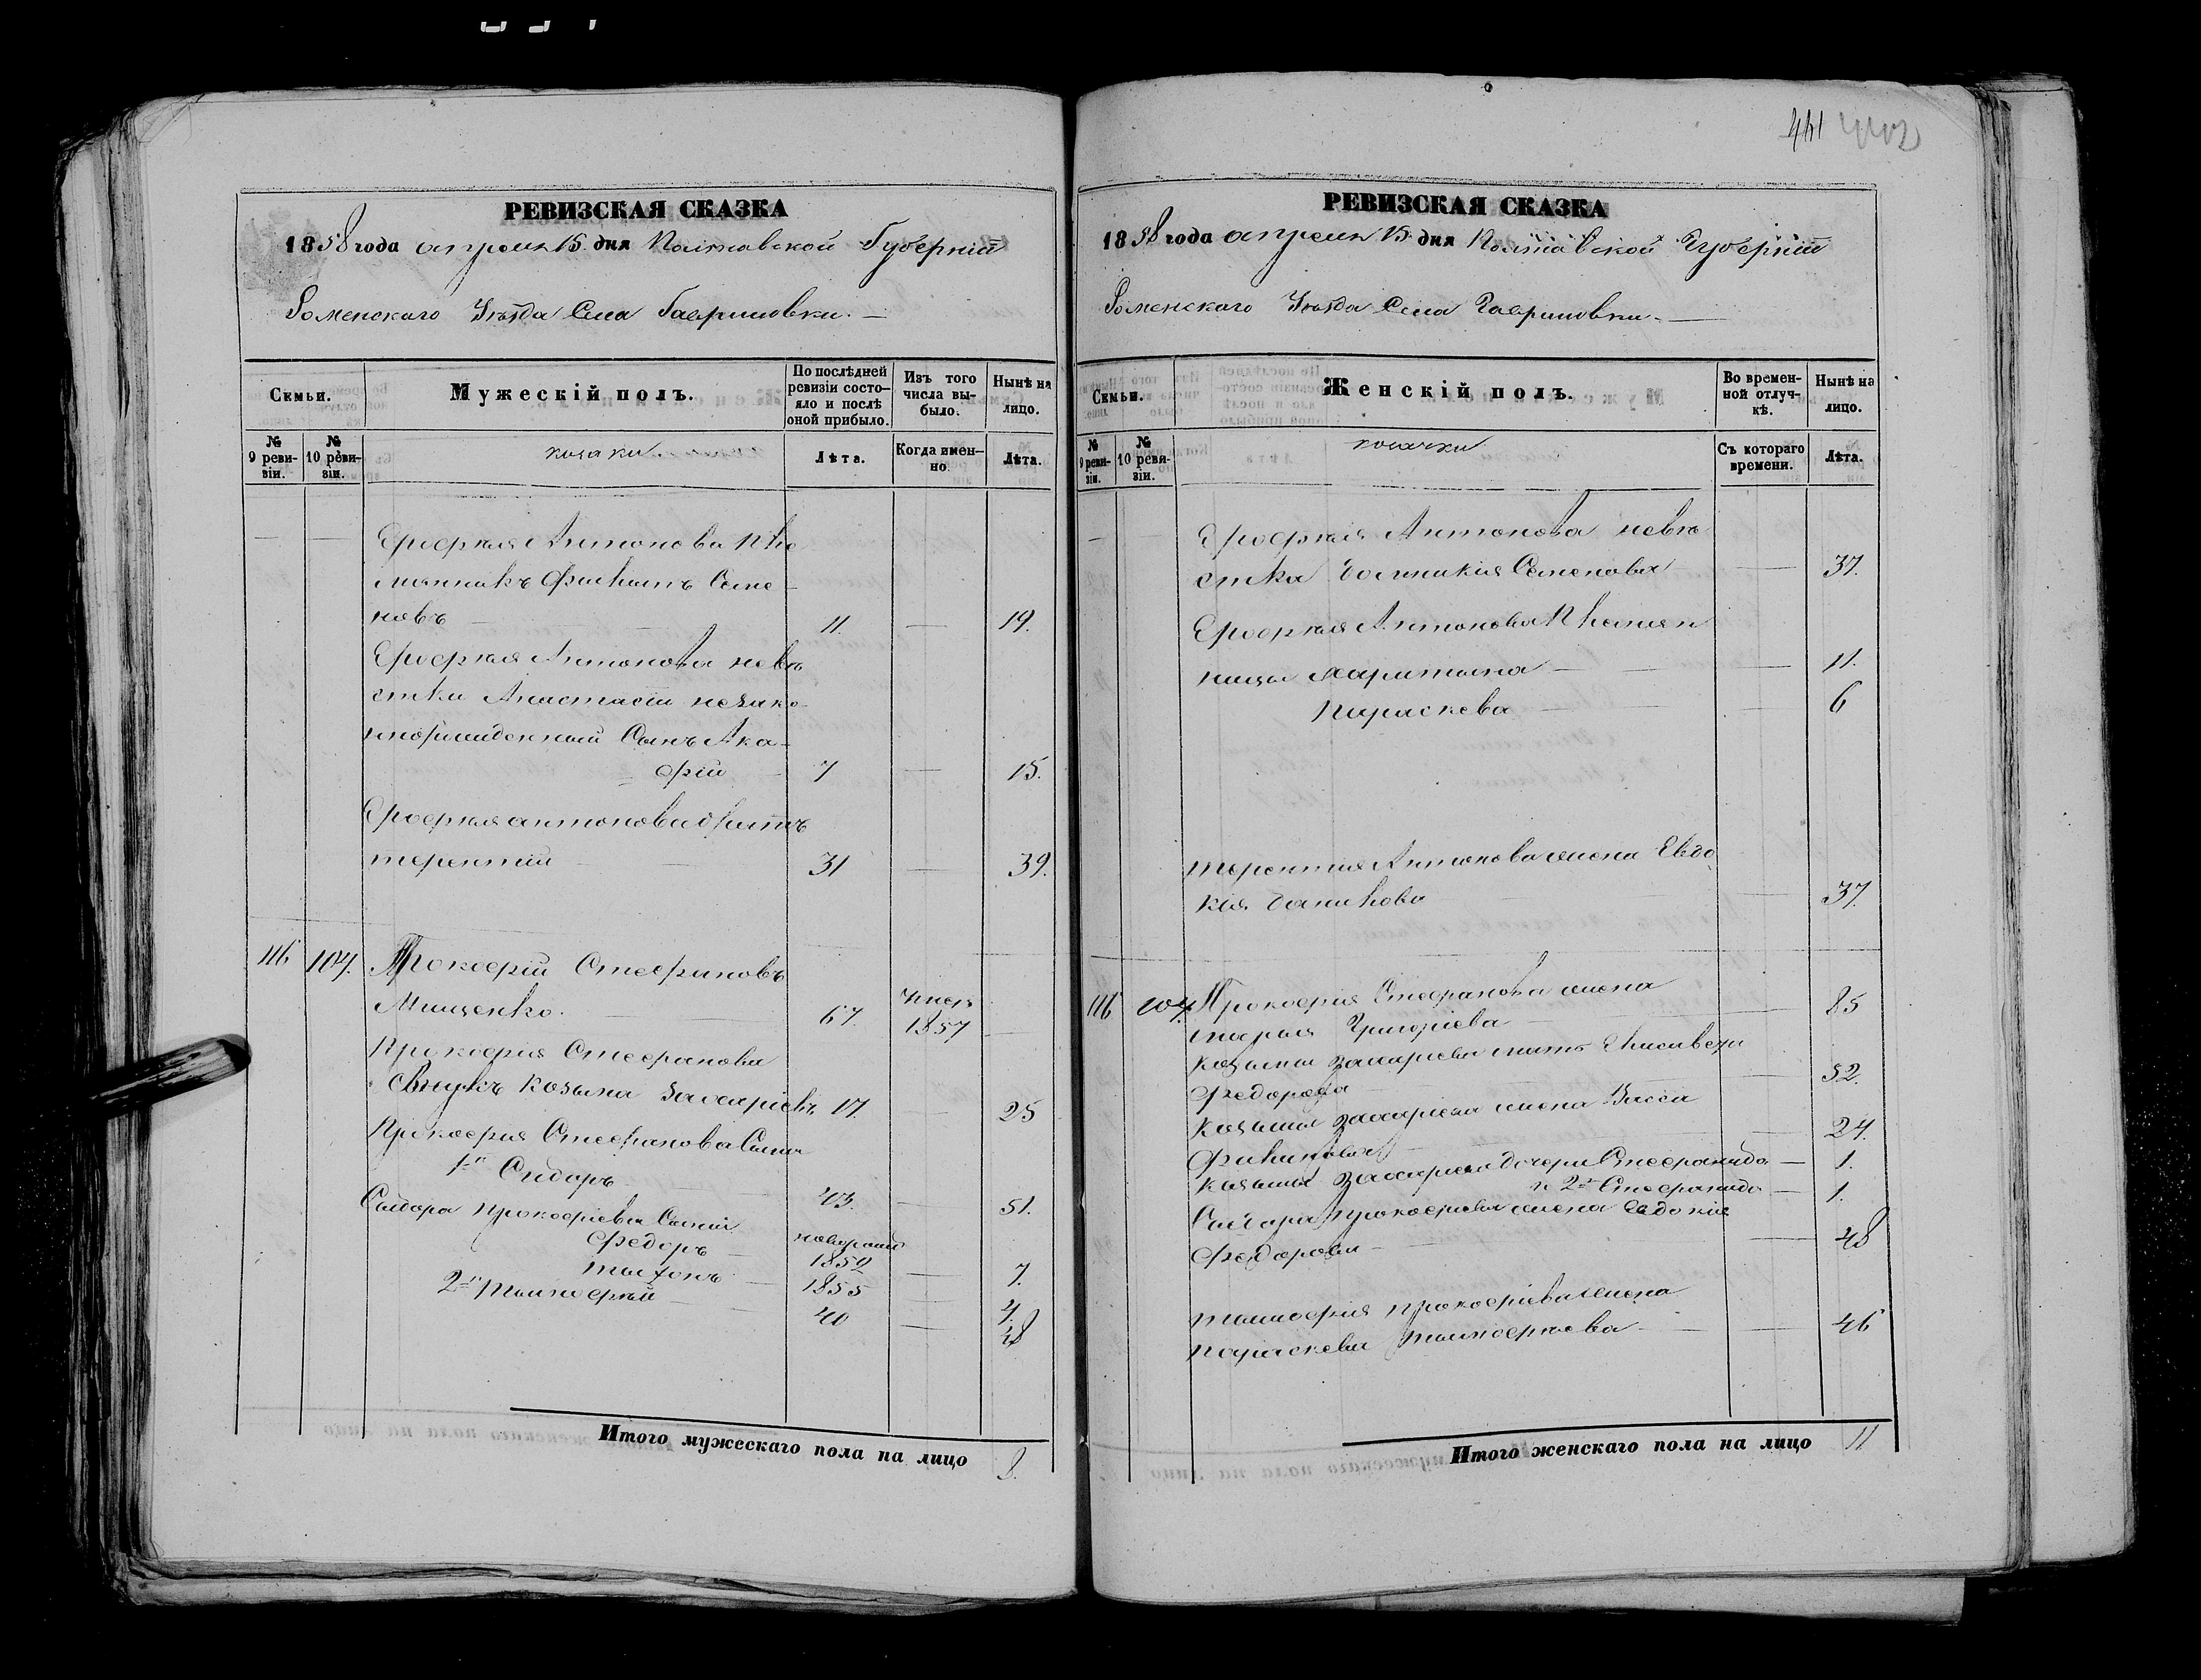 РЕВИЗСКАЯ СКАЗКА
1858 года апреля 15 дня Полтавской Губерніи
Роменскаго Уѣзда Села Гавриловки.
Семьи.
Мужескій полъ.
По послѣдней ревизіи состояло и послѣ оной прибыло.
Изъ того числа выбыло.
Нынѣ на лицо.
№ 9 ревизіи.
№ 10 ревизіи.
козаки.
Лѣта.
Когда именно.
Лѣта.
Антонова пле
мянникъ Филипъ Семе
новъ 11. 19.
Антонова невѣ
стки Анастасіи незако
ннорожденный Сынъ
7 15.
антонова братъ
терентій 31 39.
116 104. Прокофій Стефановъ
Мищенко. 67. умеръ 1857
Прокофія Стефанова
внукъ Козьма Захаріевъ 17 25
Прокофія Стефанова Сыны
1й Сидоръ 43. 51.
Сидора прокофіева Сыны
Федоръ новорожд 1852 7.
1855 4.
2й тимофей 40 48
Итого мужескаго пола на лицо 8.
441 442
РЕВИЗСКАЯ СКАЗКА
1858 года апреля 15 дня Полтавской Губерніи
Роменскаго Уѣзда Села Гавриловки.
Семьи.
Женскій полъ.
Во временной отлучкѣ.
Нынѣ на лицо.
№ 9 ревизіи.
№ 10 ревизіи.
козачки
Съ котораго времени.
Лѣта.
Антонова невѣ
стка Семенова 37.
Антонова племян
ницы Харитина 11.
Параскева 6
терентия Антонова жена Евдо
кія Данилова 37.
116 104. Прокофия Стефанова жена
марья Григоріева 85
Козьмы захаріева мать Елисавета
Федорова 52.
Козьмы захаріева жена Васса
Филипова 24.
Козьмы захаріева дочери Стефанида 1.
и 2я Стефанида 1.
Сидора прокофіева жена Евдокія
Федорова 48
тимофия прокофіева жена
параскева тимофиева 46
Итого женскаго пола на лицо 11